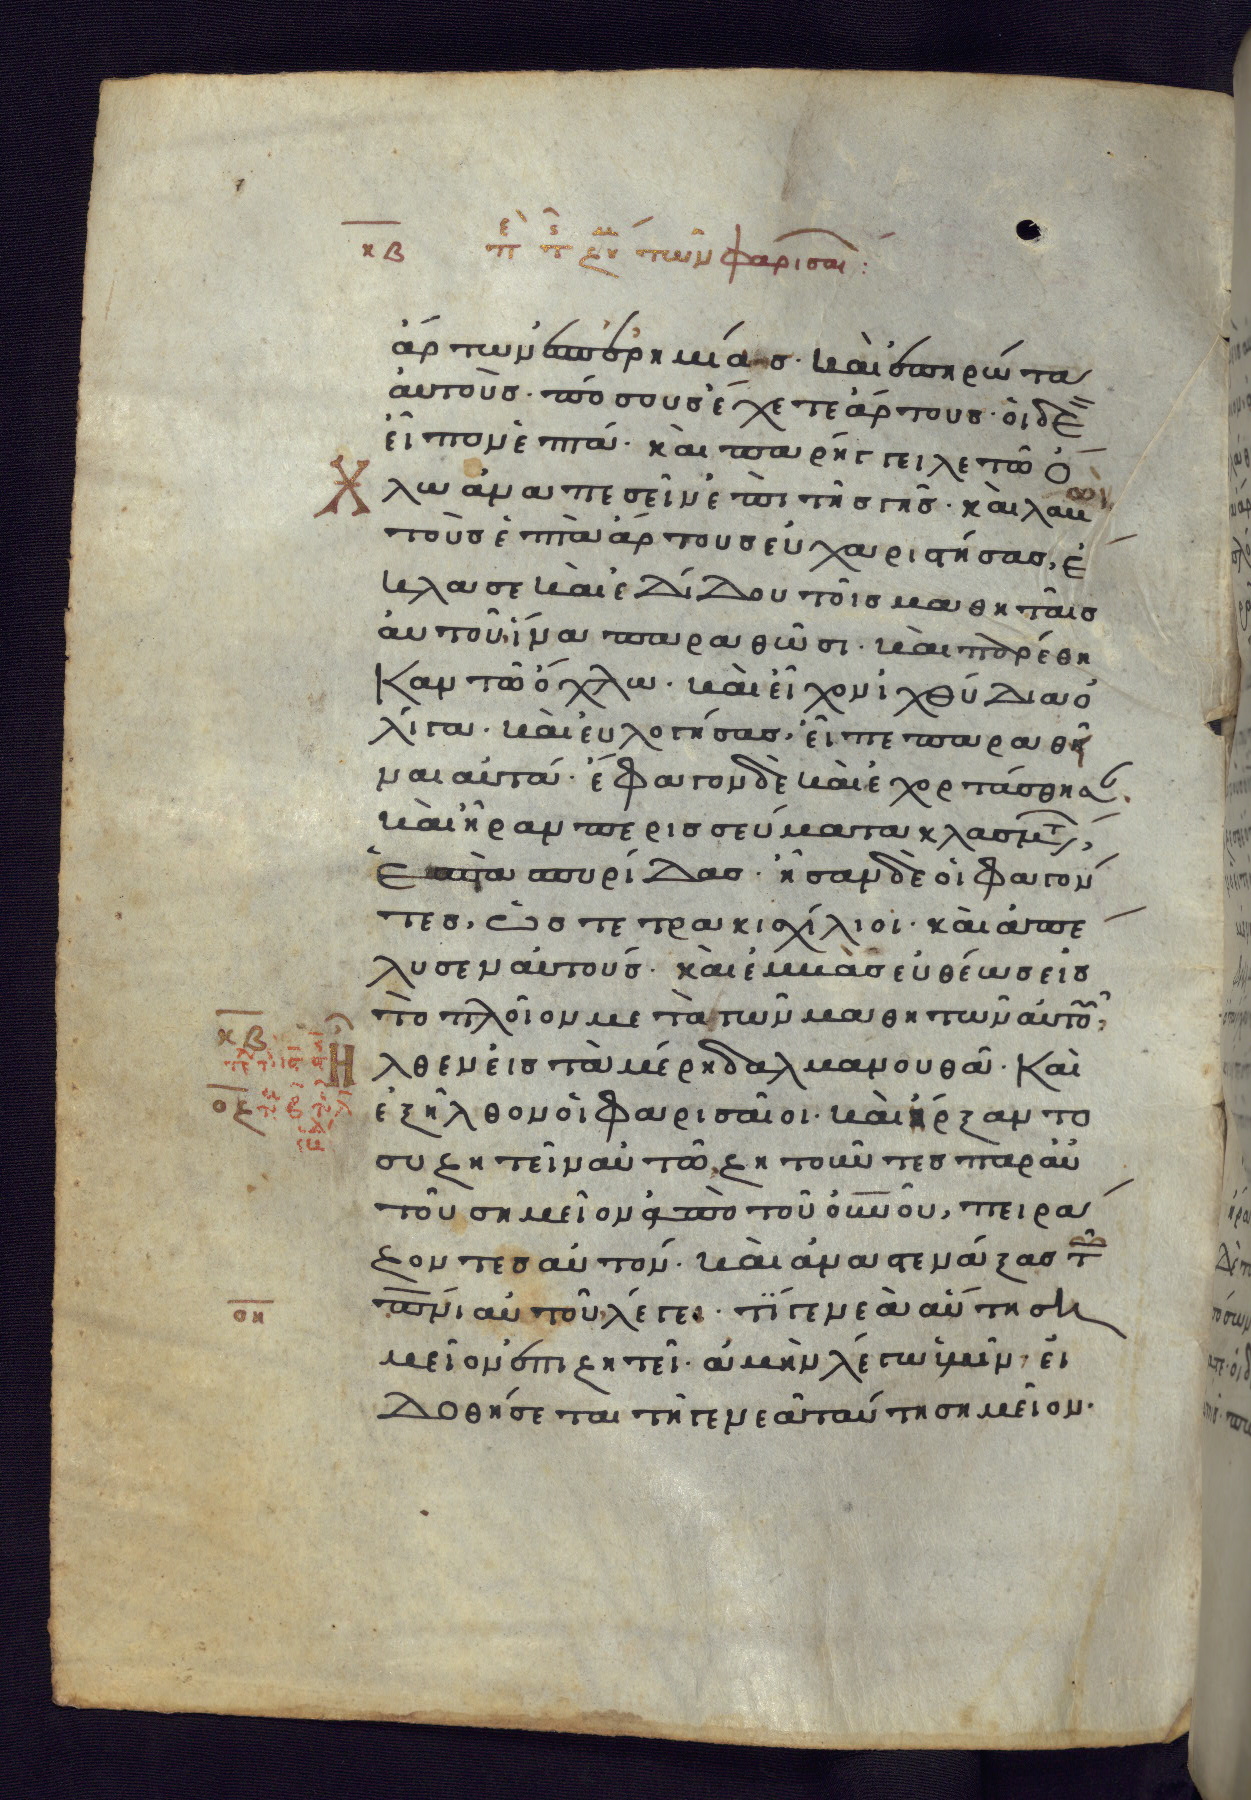 κβ περὶ τῆς ζη τῶν φαρισαι :
ἄρτων ἐπ ἐρημίασ· καὶ ἐπηρώτα
ἀυτοὺσ· πόσουσ ἔχετε ἄρτουσ· ὁι δὲ
εἶπον ἑπτά· καὶ παρήγγειλε τῶ ὄ
χλω ἀναπεσεῖν ἐπὶ τῆσ γῆσ· καὶ λαβὼν
τοὺσ ἑπτὰ ἄρτουσ ἐυχαριστήσασ, ἔ
κλασε καὶ ἐδίδου τοῖσ μαθηταῖσ
ἀυτοῦ ἵνα παραθῶσι· καὶ παρέθη
καν τῶ ὄχλω· καὶ εἶχον ἰχθύδια ὀ
λίγα· καὶ ἐυλογήσασ, εἶπε παραθῆ
ναι ἀυτά· ἔφαγον δὲ καὶ ἐχορτάσθησαν.
καὶ ἦραν περισσεύματα κλασμάτων,
ἑπτὰ σπυρίδασ· ἦσαν δὲ ὁι φαγόν
τεσ, ὡσ τετρακισχίλιοι· καὶ ἀπέ
λυσεν ἀυτούσ· καὶ ἐμβὰσ ἐυθέωσ εἰσ
τὸ πλοῖον μετὰ τῶν μαθητῶν ἀυτοῦ,
κβ
οζ
ἦλθεν εἰσ τὰ μέρη δαλμανουθά· Καὶ
ἐξῆλθον ὁι φαρισαῖοι· καὶ ἤρξαντο
συζητεῖν ἀυτῶ, ζητοῦντεσ παρ ἀυ
τοῦ σημεῖον ἀπὸ τοῦ ὀυνοῦ, πειρά
ζοντεσ ἀυτόν· καὶ ἀναστενάξασ τῶ
πνι ἀυτοῦ λέγει· τί γενεὰ ἀύτη ση
ση
μεῖον ἐπιζητεῖ· ἀμὴν λέγω ὑμῖν, εἰ
δοθήσεται τῆ γενεᾶ ταύτη σημεῖον·